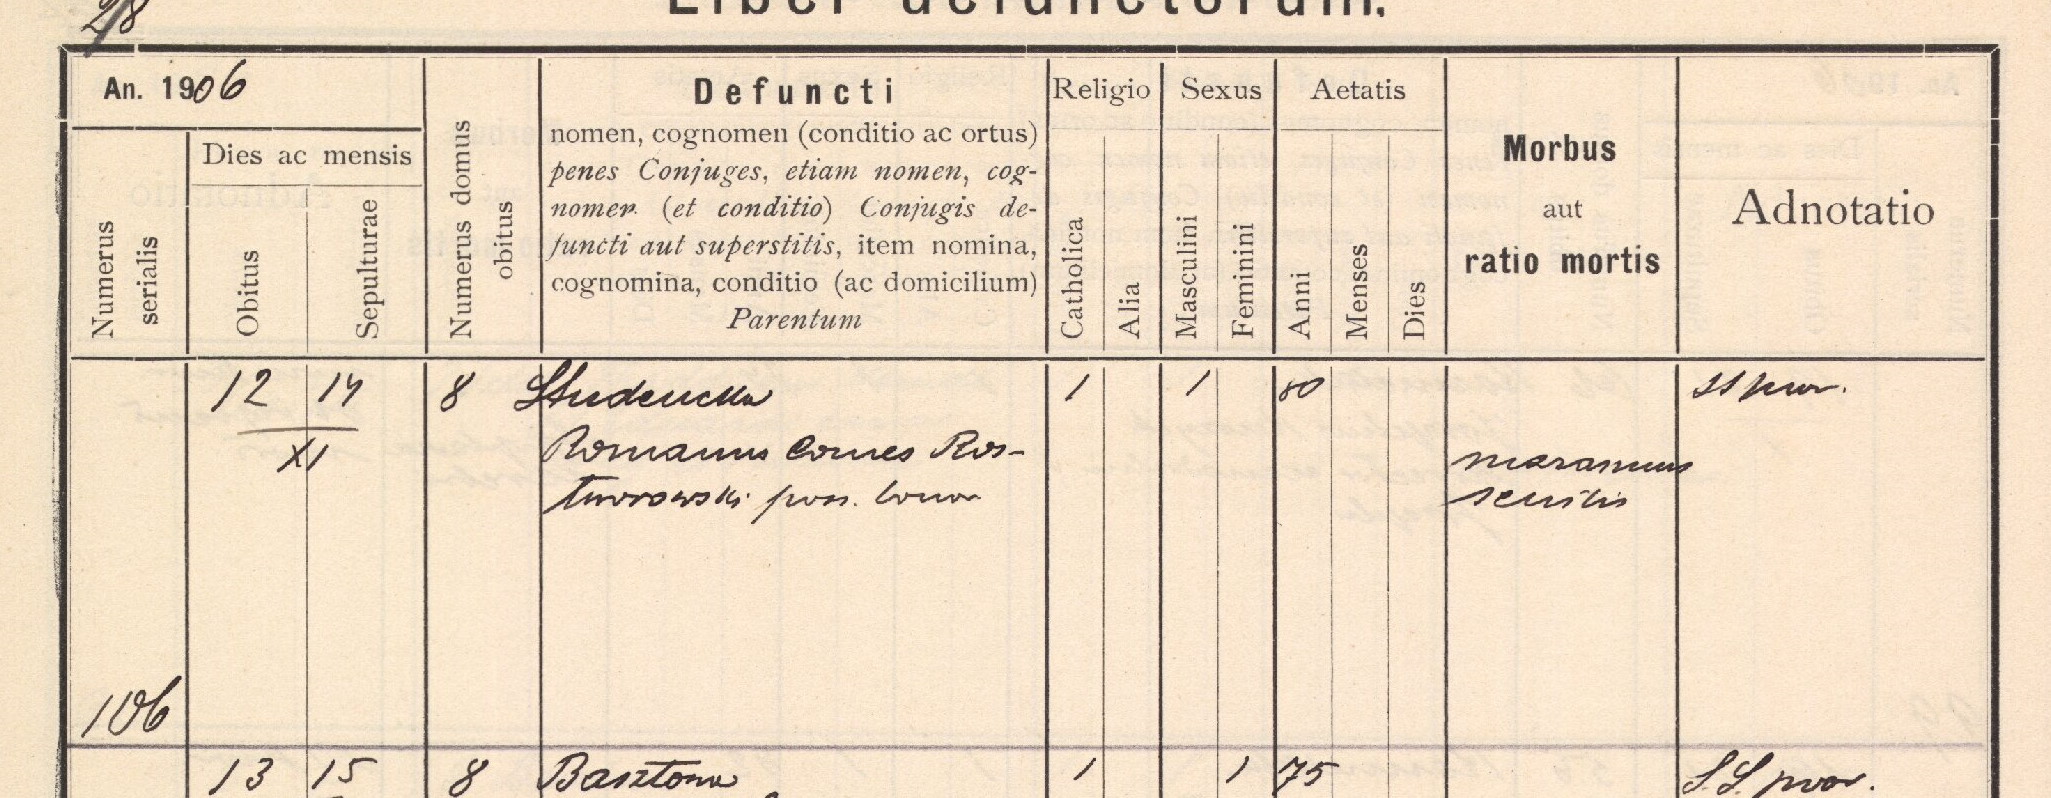 28
Liber defunctorum.
An. 1906
Dies ac mensis
Numerus serialis
Obitus
Sepulturae
Numerus domus obitus
Defuncti
nomen, cognomen (conditio ac ortus)
penes Conjuges, etiam nomen, cog-
nomen (et conditio) Conjugis de-
functi aut superstitis, item nomina,
cognomina, conditio (ac domicilium)
Parentum
Religio
Catholica
Alia
Sexus
Masculini
Feminini
Aetatis
Anni
Menses
Dies
Morbus
aut
ratio mortis
Adnotatio
12 14 8 Studencka 1 1 80
XI Romanus Comes Ros-
tworowski poss. bonor
marasmus
senilis
106
13 15 8 Basztowa 1 1 75 S.S. prov.